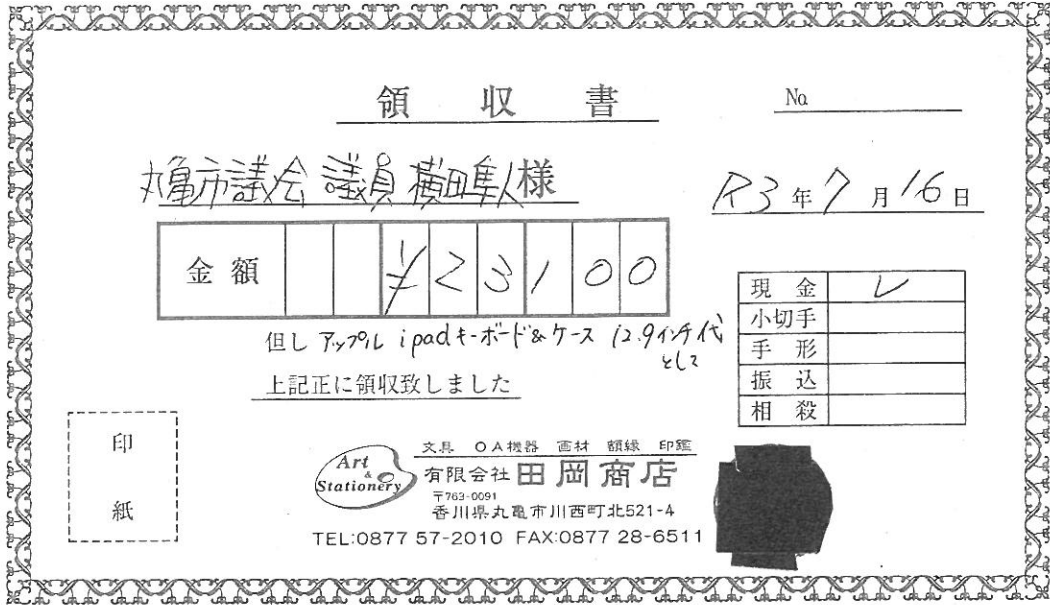 領収書
No.
丸亀市議会 議員 横田隼人様
R3年7月16日
金額 ¥23100
但し アップル ipadキーボード&ケース 12.9インチ代
として
上記正に領収致しました
現金 レ
小切手
手形
振込
相殺
印
紙
Art & Stationery
文具 OA機器 画材 額縁 印鑑
有限会社 田岡商店
〒763-0091
香川県丸亀市川西町北521-4
TEL:0877 57-2010 FAX:0877 28-6511